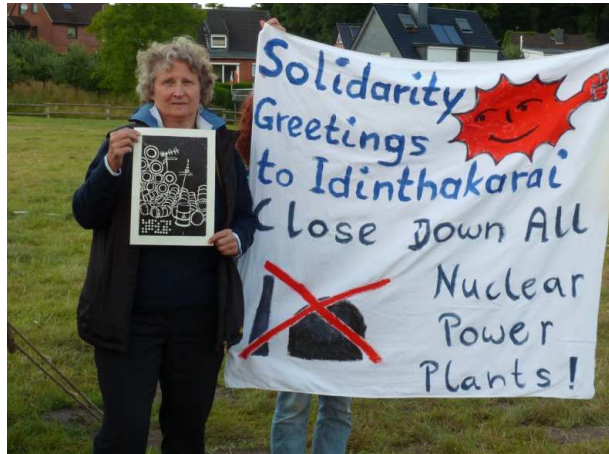 Solidarity
Greetings
to Idinthakarai
Close Down All
Nuclear
Power
Plants!